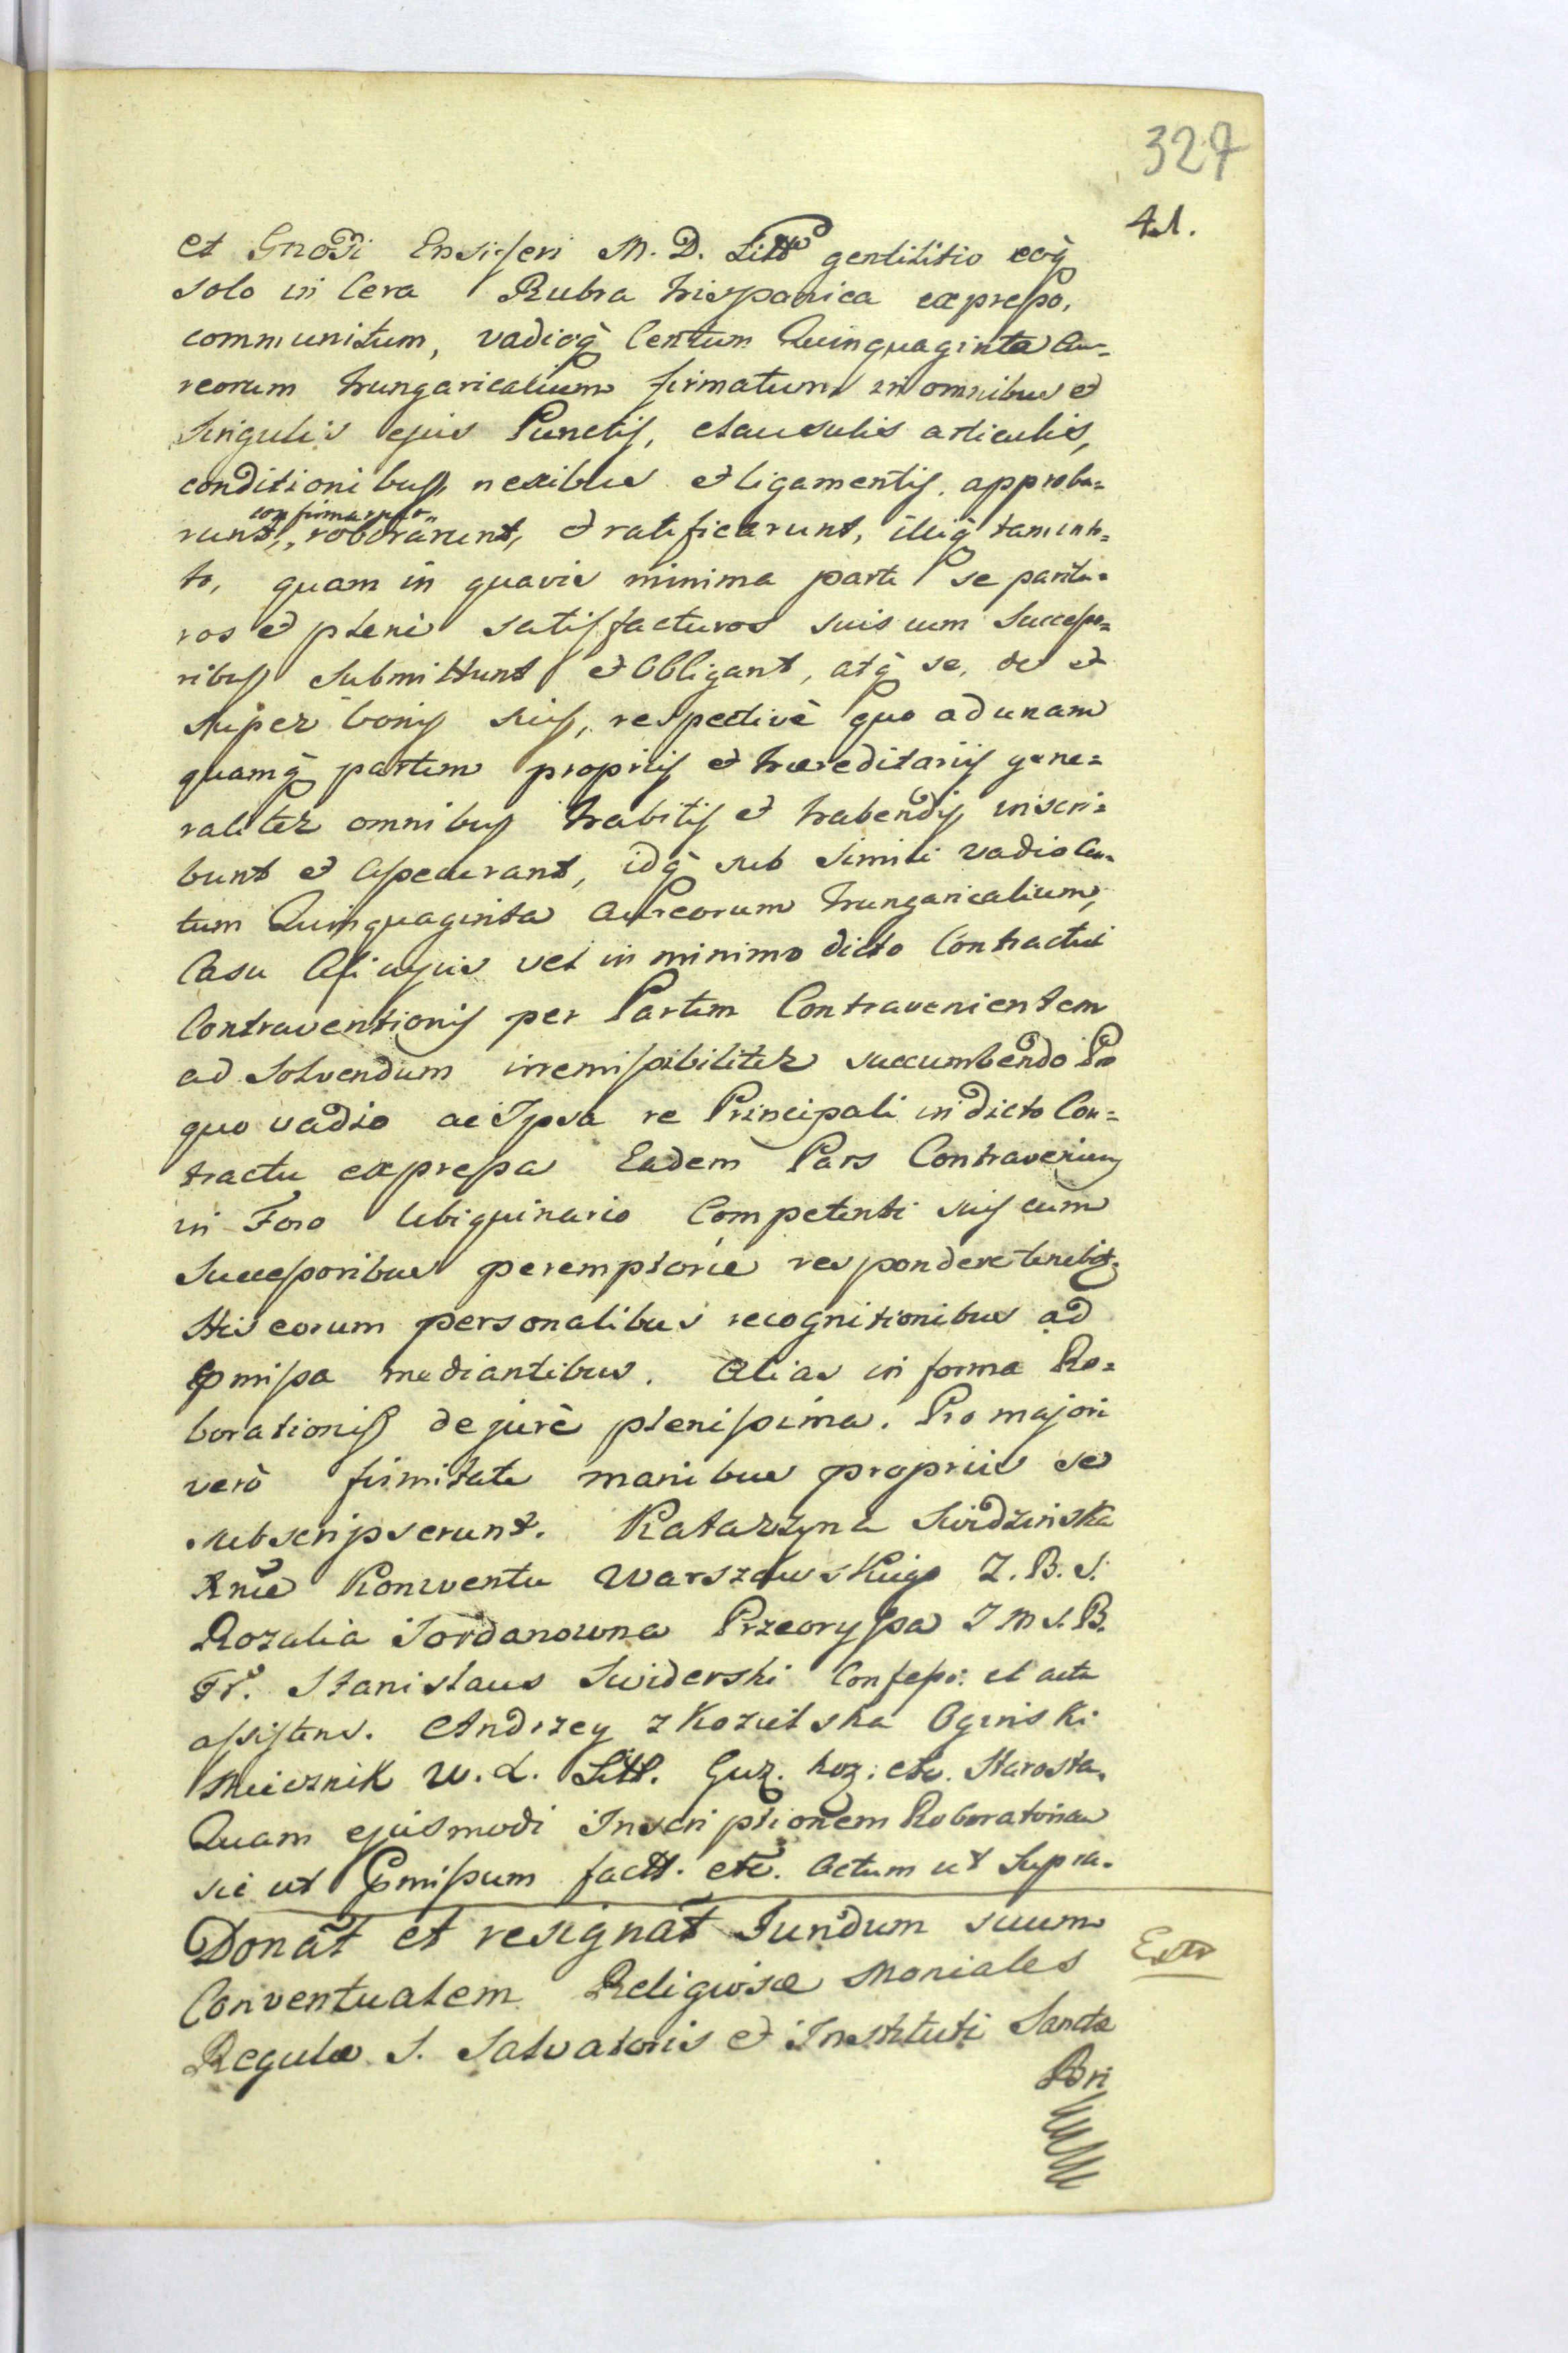 327
41.
et Gnosi Ensiferi M. D. Litt gentilitio eoq̃
solo in Cera Rubra hispanica expresso,
communitum, vadioq̃ Centum Quinquaginta Au=
reorum hungaricalium firmatum in omnibus et
Singulis ejus Punctis, clausulis articulis,
conditionibus, nexibus et ligamentis, approba=
confirmarunt
runt, roborarunt, et ratificarunt, illiq̃ tam in to=
to, quam in quavis minima parte se paritu=
ros et plenè satisfacturos suis cum Successo=
ribus submittunt et Obligant, atq̃ se, de et
super bonis suis, respectivè quo ad unam
quamq̃ partem propriis et hæreditariis gene=
raliter omnibus habitis et habendis inscri=
bunt et Assecurant, idq̃ sub simili vadio Cen=
tum Quinquaginta Aureorum hungaricalium,
Casu Alicujus vel in minimo dicto Contractui
Contraventionis per Partem Contravenientem
ad Solvendum irremissibiliter succumbendo Pro
quo vadio ac Ipsa re Principali in dicto Con=
tractu expressa Eadem Pars Contraveniens
in Foro Ubiquinario Competenti suis cum
Successoribus peremptoriè respondere tenebit
His eorum personalibus recognitionibus ad
Pmissa mediantibus. Alias in forma Ro=
borationis de jurè plenissima. Pro majori
verò firmitate manibus propriis se
subscripserunt. Katarzyna Swidzinska
Xnie Konwentu Warszawskiego Z. B. S.
Rozalia Jordanowna Przeoryssa Z M S. B.
Fr. Stanislaus Swiderski Confess: et actu
assistens. Andrzey z Kozielska Oginski
Miecznik W. X. Litt. Guz. etc. Starosta.
Quam ejusmodi Inscriptionem Roboratoriam
sic ut Pmissum factt. etc. Actum ut Supra.
Donat et resignat Fundum suum
Extr
Conventualem Religiosæ Moniales
Regulæ S. Salvatoris et Instituti Sanctæ
Bri